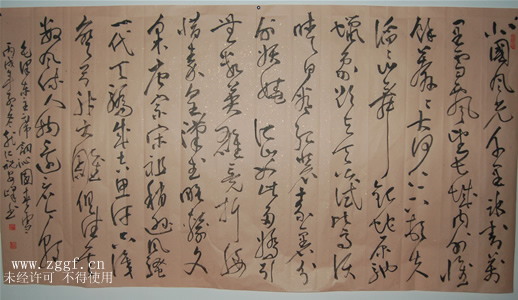 北國风光千里冰封万
里雪飘望长城内外惟
餘莽々大河上下顿失
滔々山舞银蛇原驰
蜡象欲与天公试比高须
晴日看红装素裹分
外妖娆江山如此多娇引
无数英雄竞折腰
惜秦皇汉武略输文
采唐宗宋祖稍逊风骚
一代天骄成吉思汗只识
弯弓射大雕俱往矣
数风流人物还看今朝
毛泽东主席词沁园春雪
丙戌年
www.zggf.cn
未经许可 不得使用